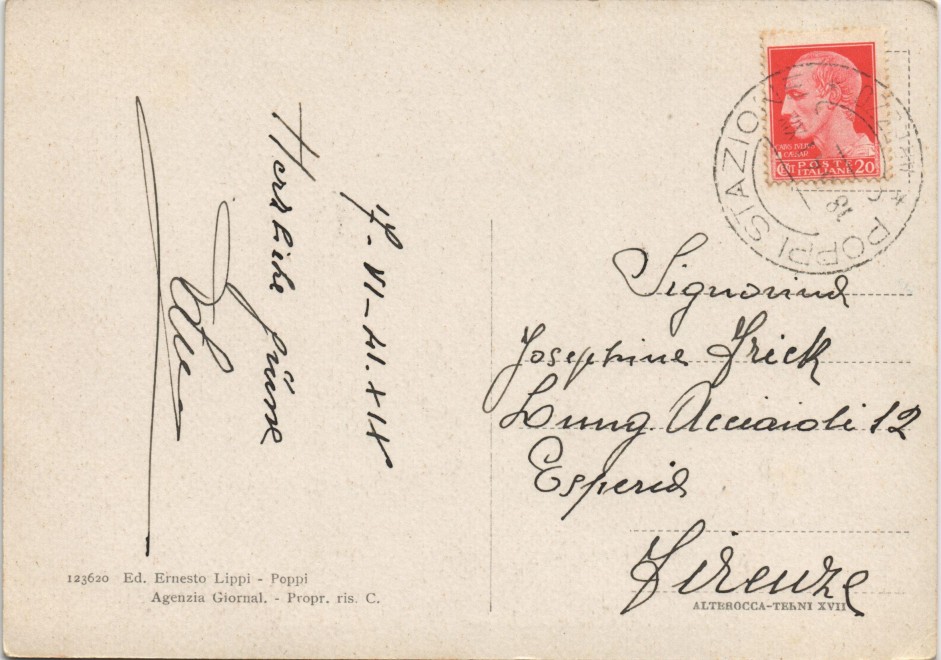 17. VI - 41. XIX
Herzliche Grüsse
POPPI STAZIONE
CAIVS IVLIVS
CAESAR
CENT POSTE 20
ITALIANE
Signorina
Josephine Frick
Lung Acciaioli 12
Esperia
Firenze
123620 Ed. Ernesto Lippi - Poppi
Agenzia Giornal. - Propr. ris. C.
ALTEROCCA-TERNI XVII